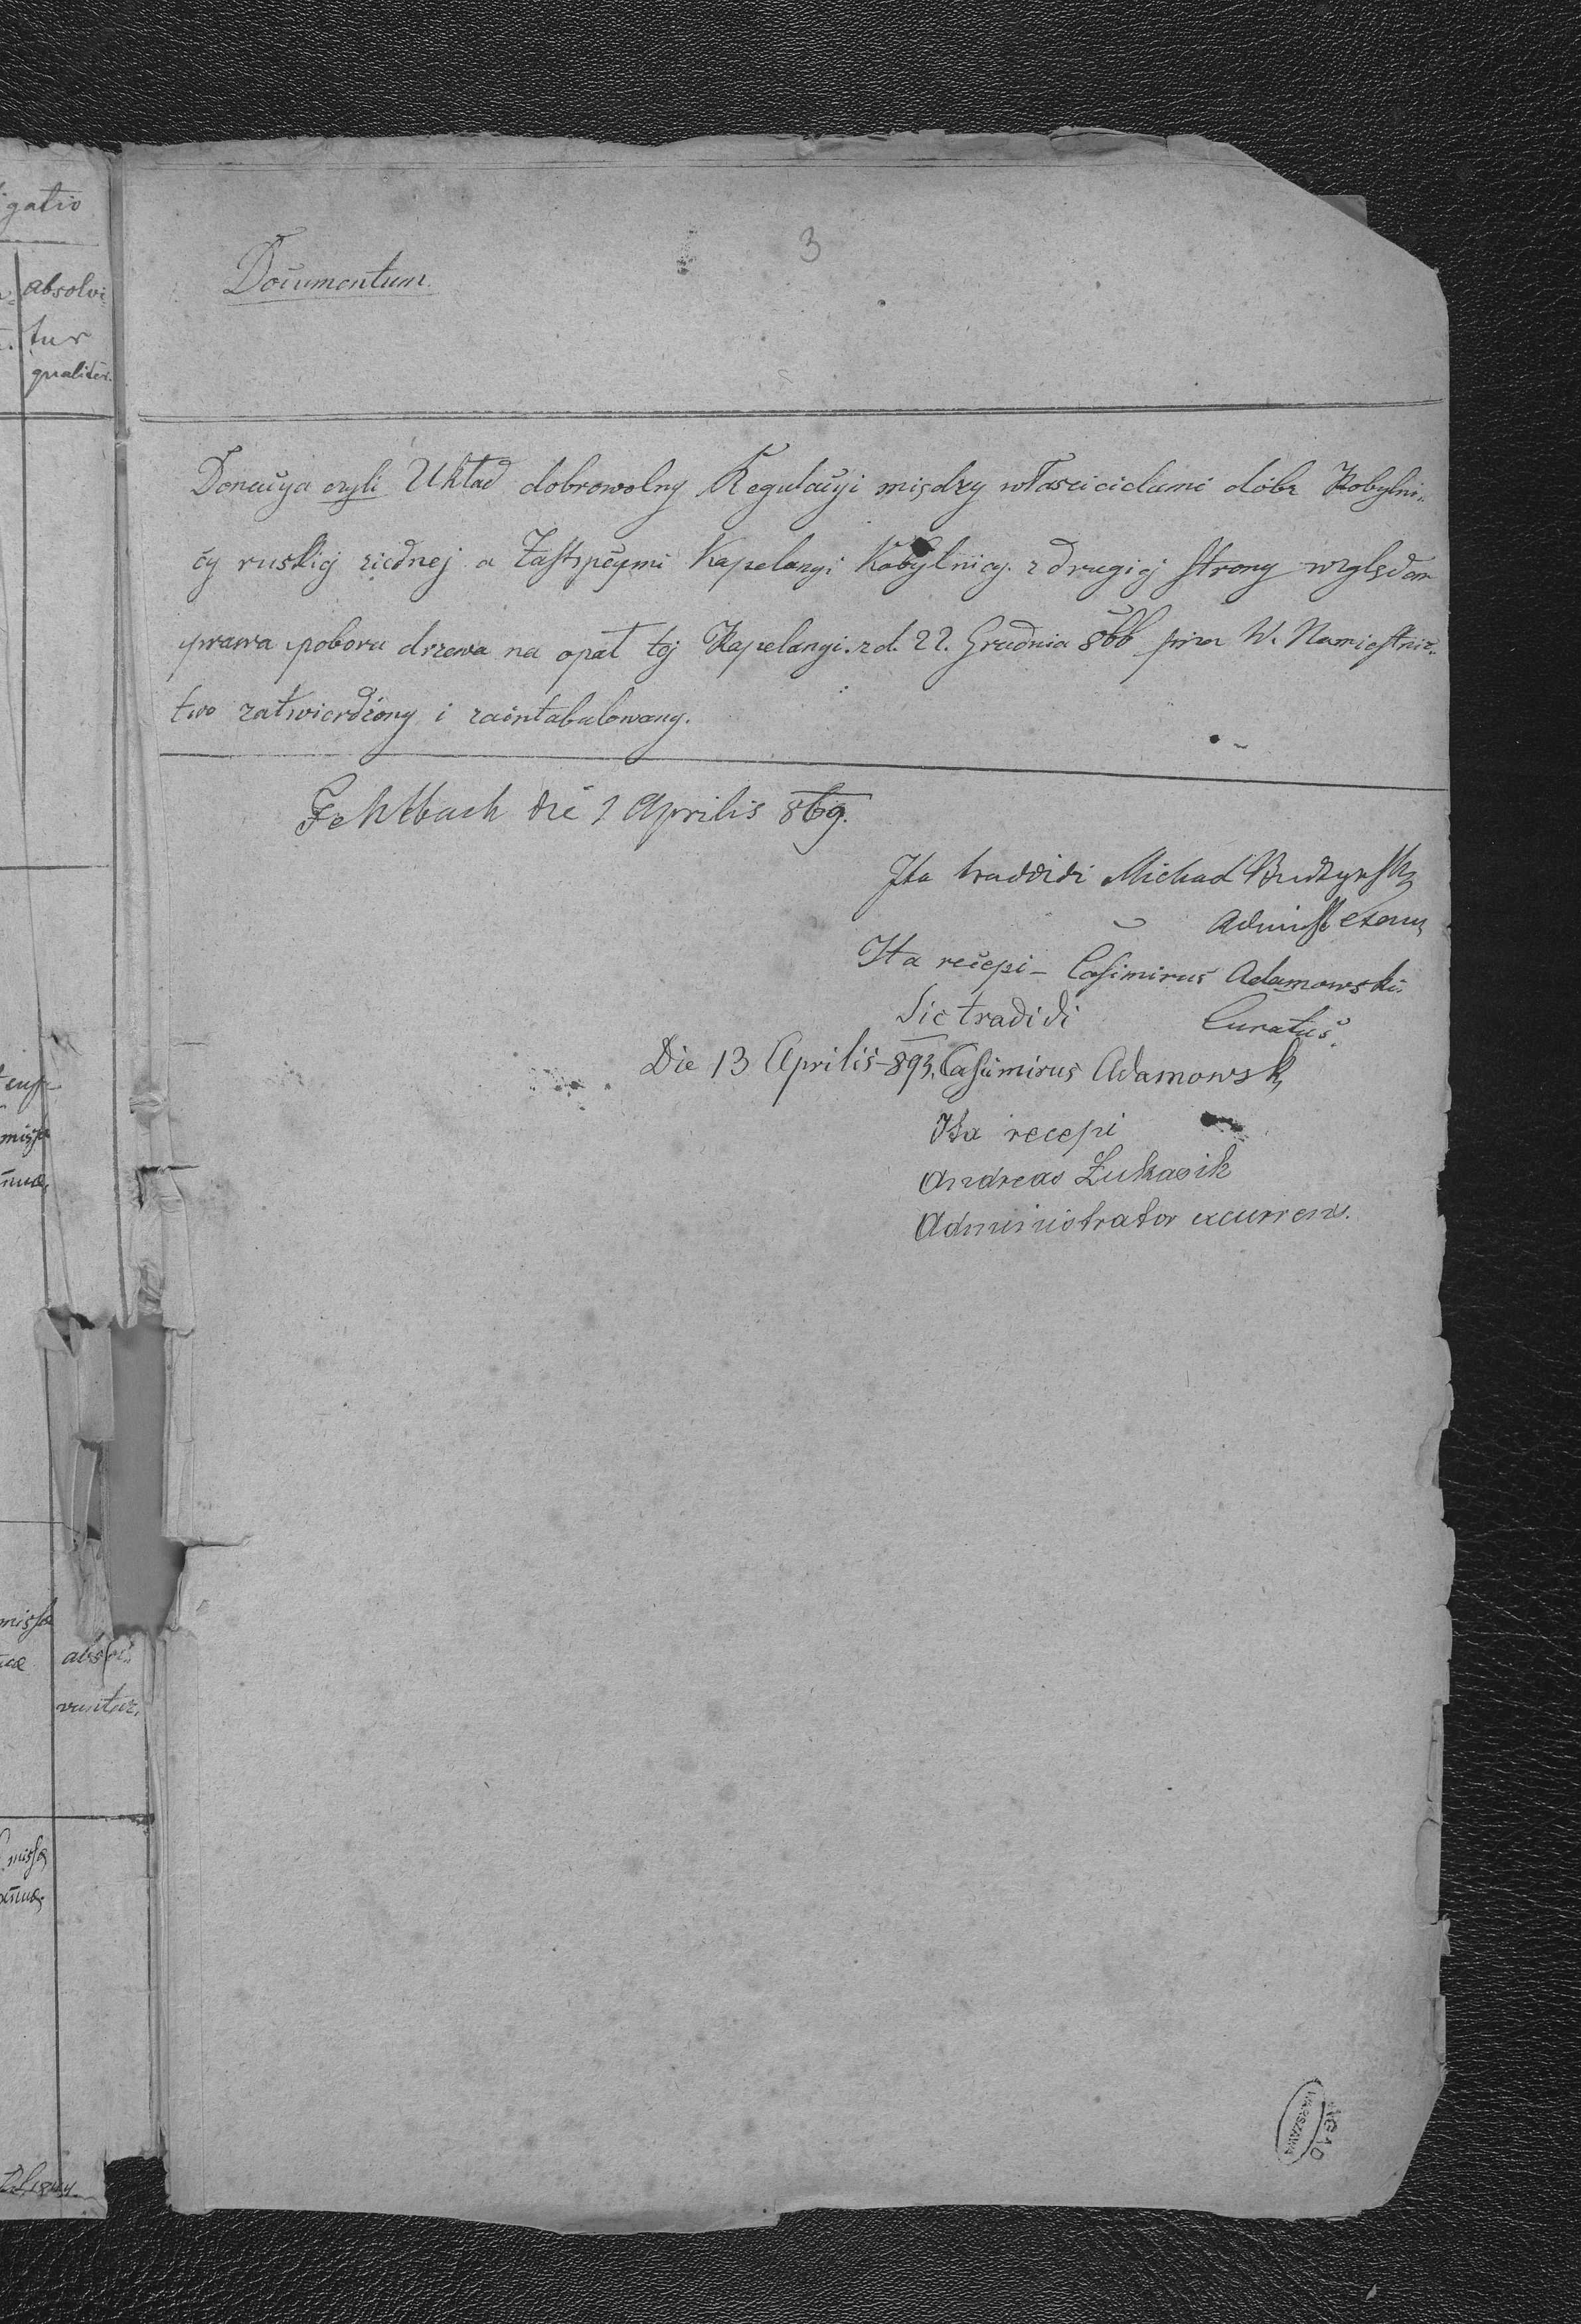 3
Documentum.
Donacya czyli Układ dobrowolny Regulacyi między właścicielami dóbr Kobylni-
cy ruskiej ziednej a Zastępcymi Kapelanyi Kobylnicy. z drugiej strony względem
prawa poboru drzewa na opał tej Kapelanyi. z d. 22. Grudnia 866 przez W. Namiestnic-
two zatwierdzony i zaintabulowany.
Fehlbach die 1 Aprilis 869.
Ita tradidi Michael Budzyński
Ita recepi - Casimirus Adamowski
Curatus.
Sic tradidi
Die 13 Aprilis 893. Casimirus Adamowski
Ita recepi
Andreas Łukasik
Administrator excurrens.
gatio
absolvi
tur
qualiter.
missa
missa
vuntur.
missa
NGAD
WARSZAWA